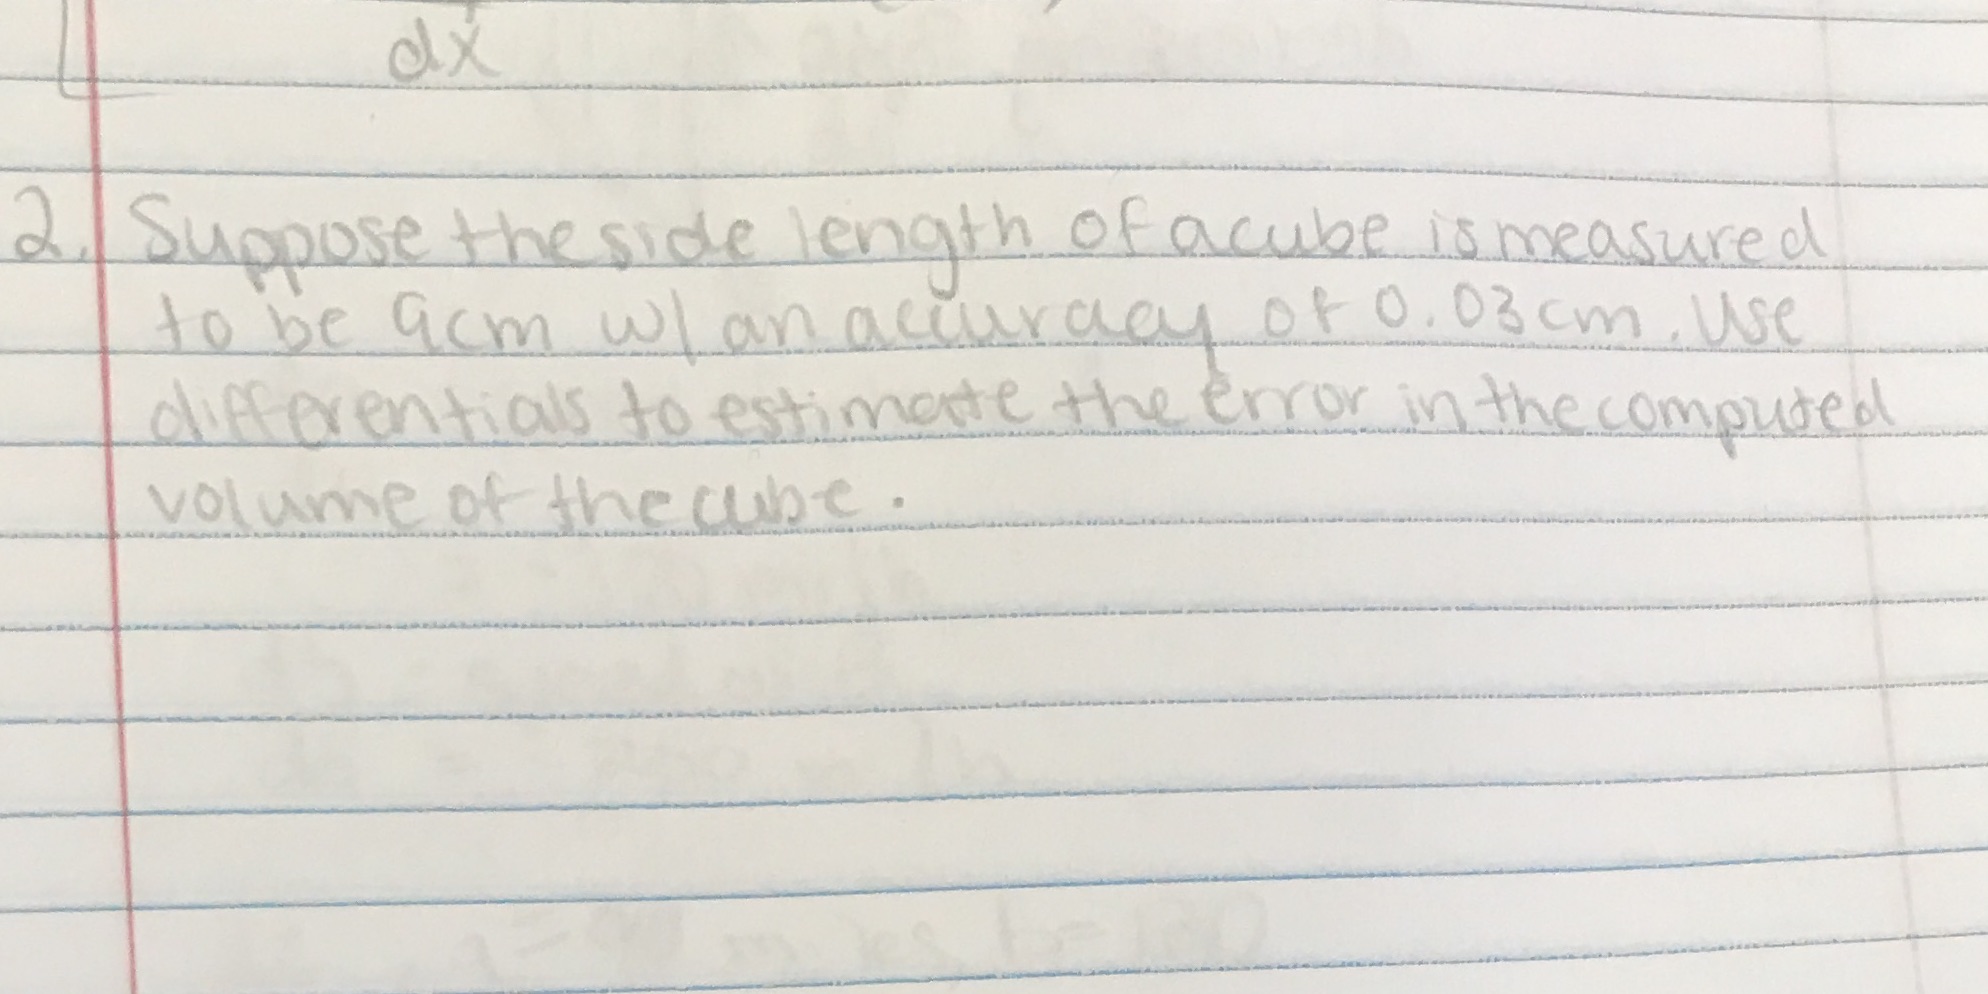 dx
2. Suppose the side length of a cube is measured
to be 9cm w/ an accuracy of 0.03cm. Use
differentials to estimate the error in the computed
volume of the cube.